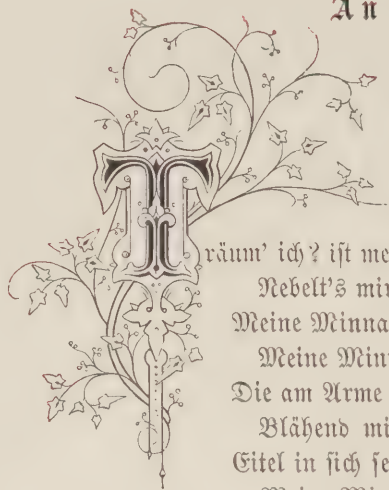 An
Träum' ich? ist me
Nebelt's mir
Meine Minna
Meine Min
Die am Arme
Blähend mi
Eitel in sich se